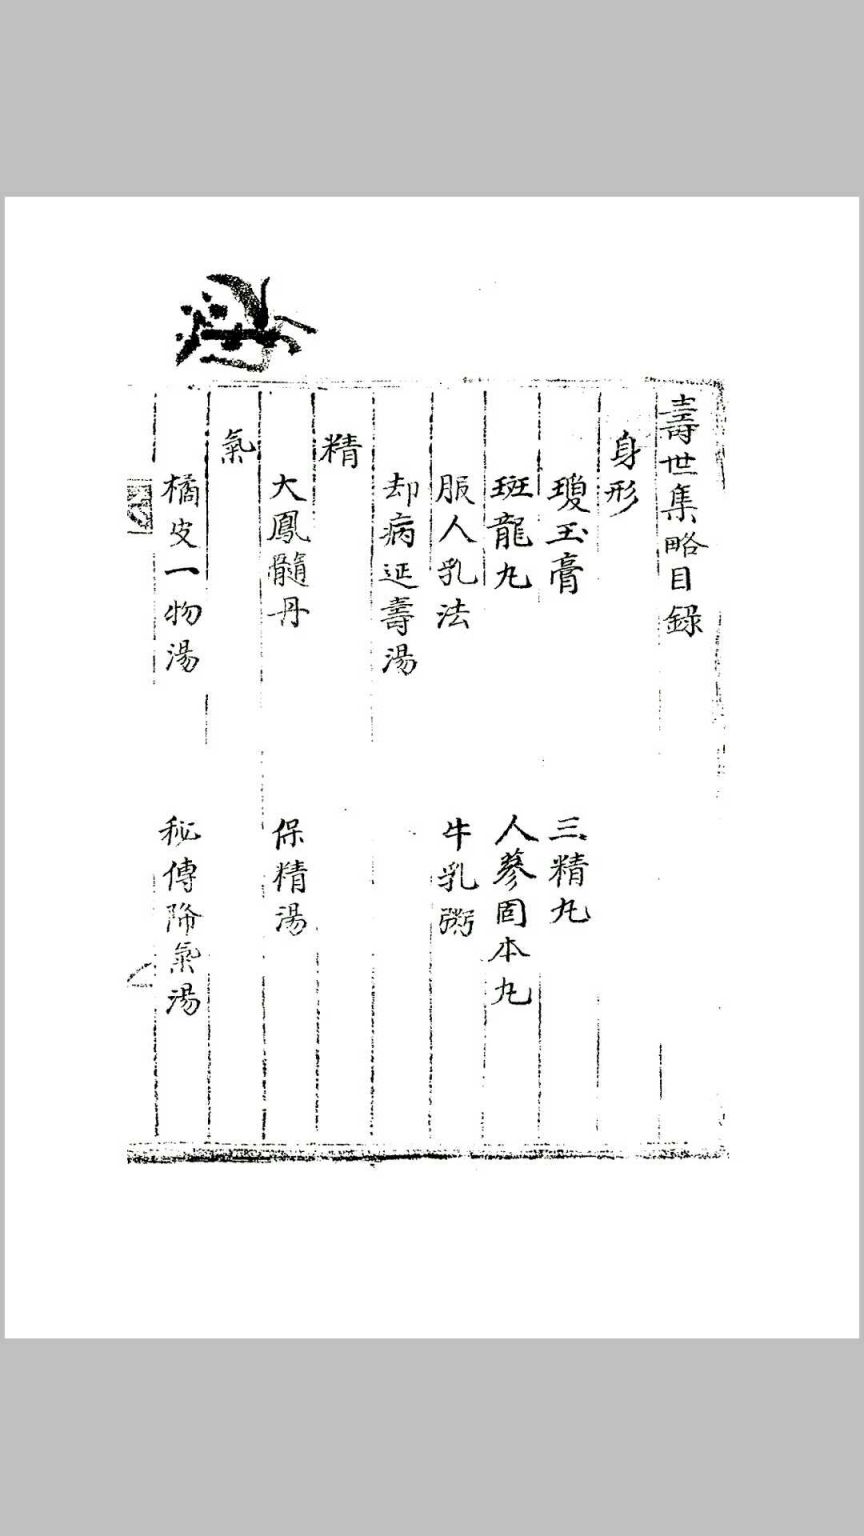 壽世集略目錄
身形
瓊玉膏 三精丸
斑龍丸 人蔘固本丸
服人乳法 牛乳粥
却病延壽湯
精
大鳳髓丹 保精湯
氣
橘皮一物湯 秘傳降氣湯